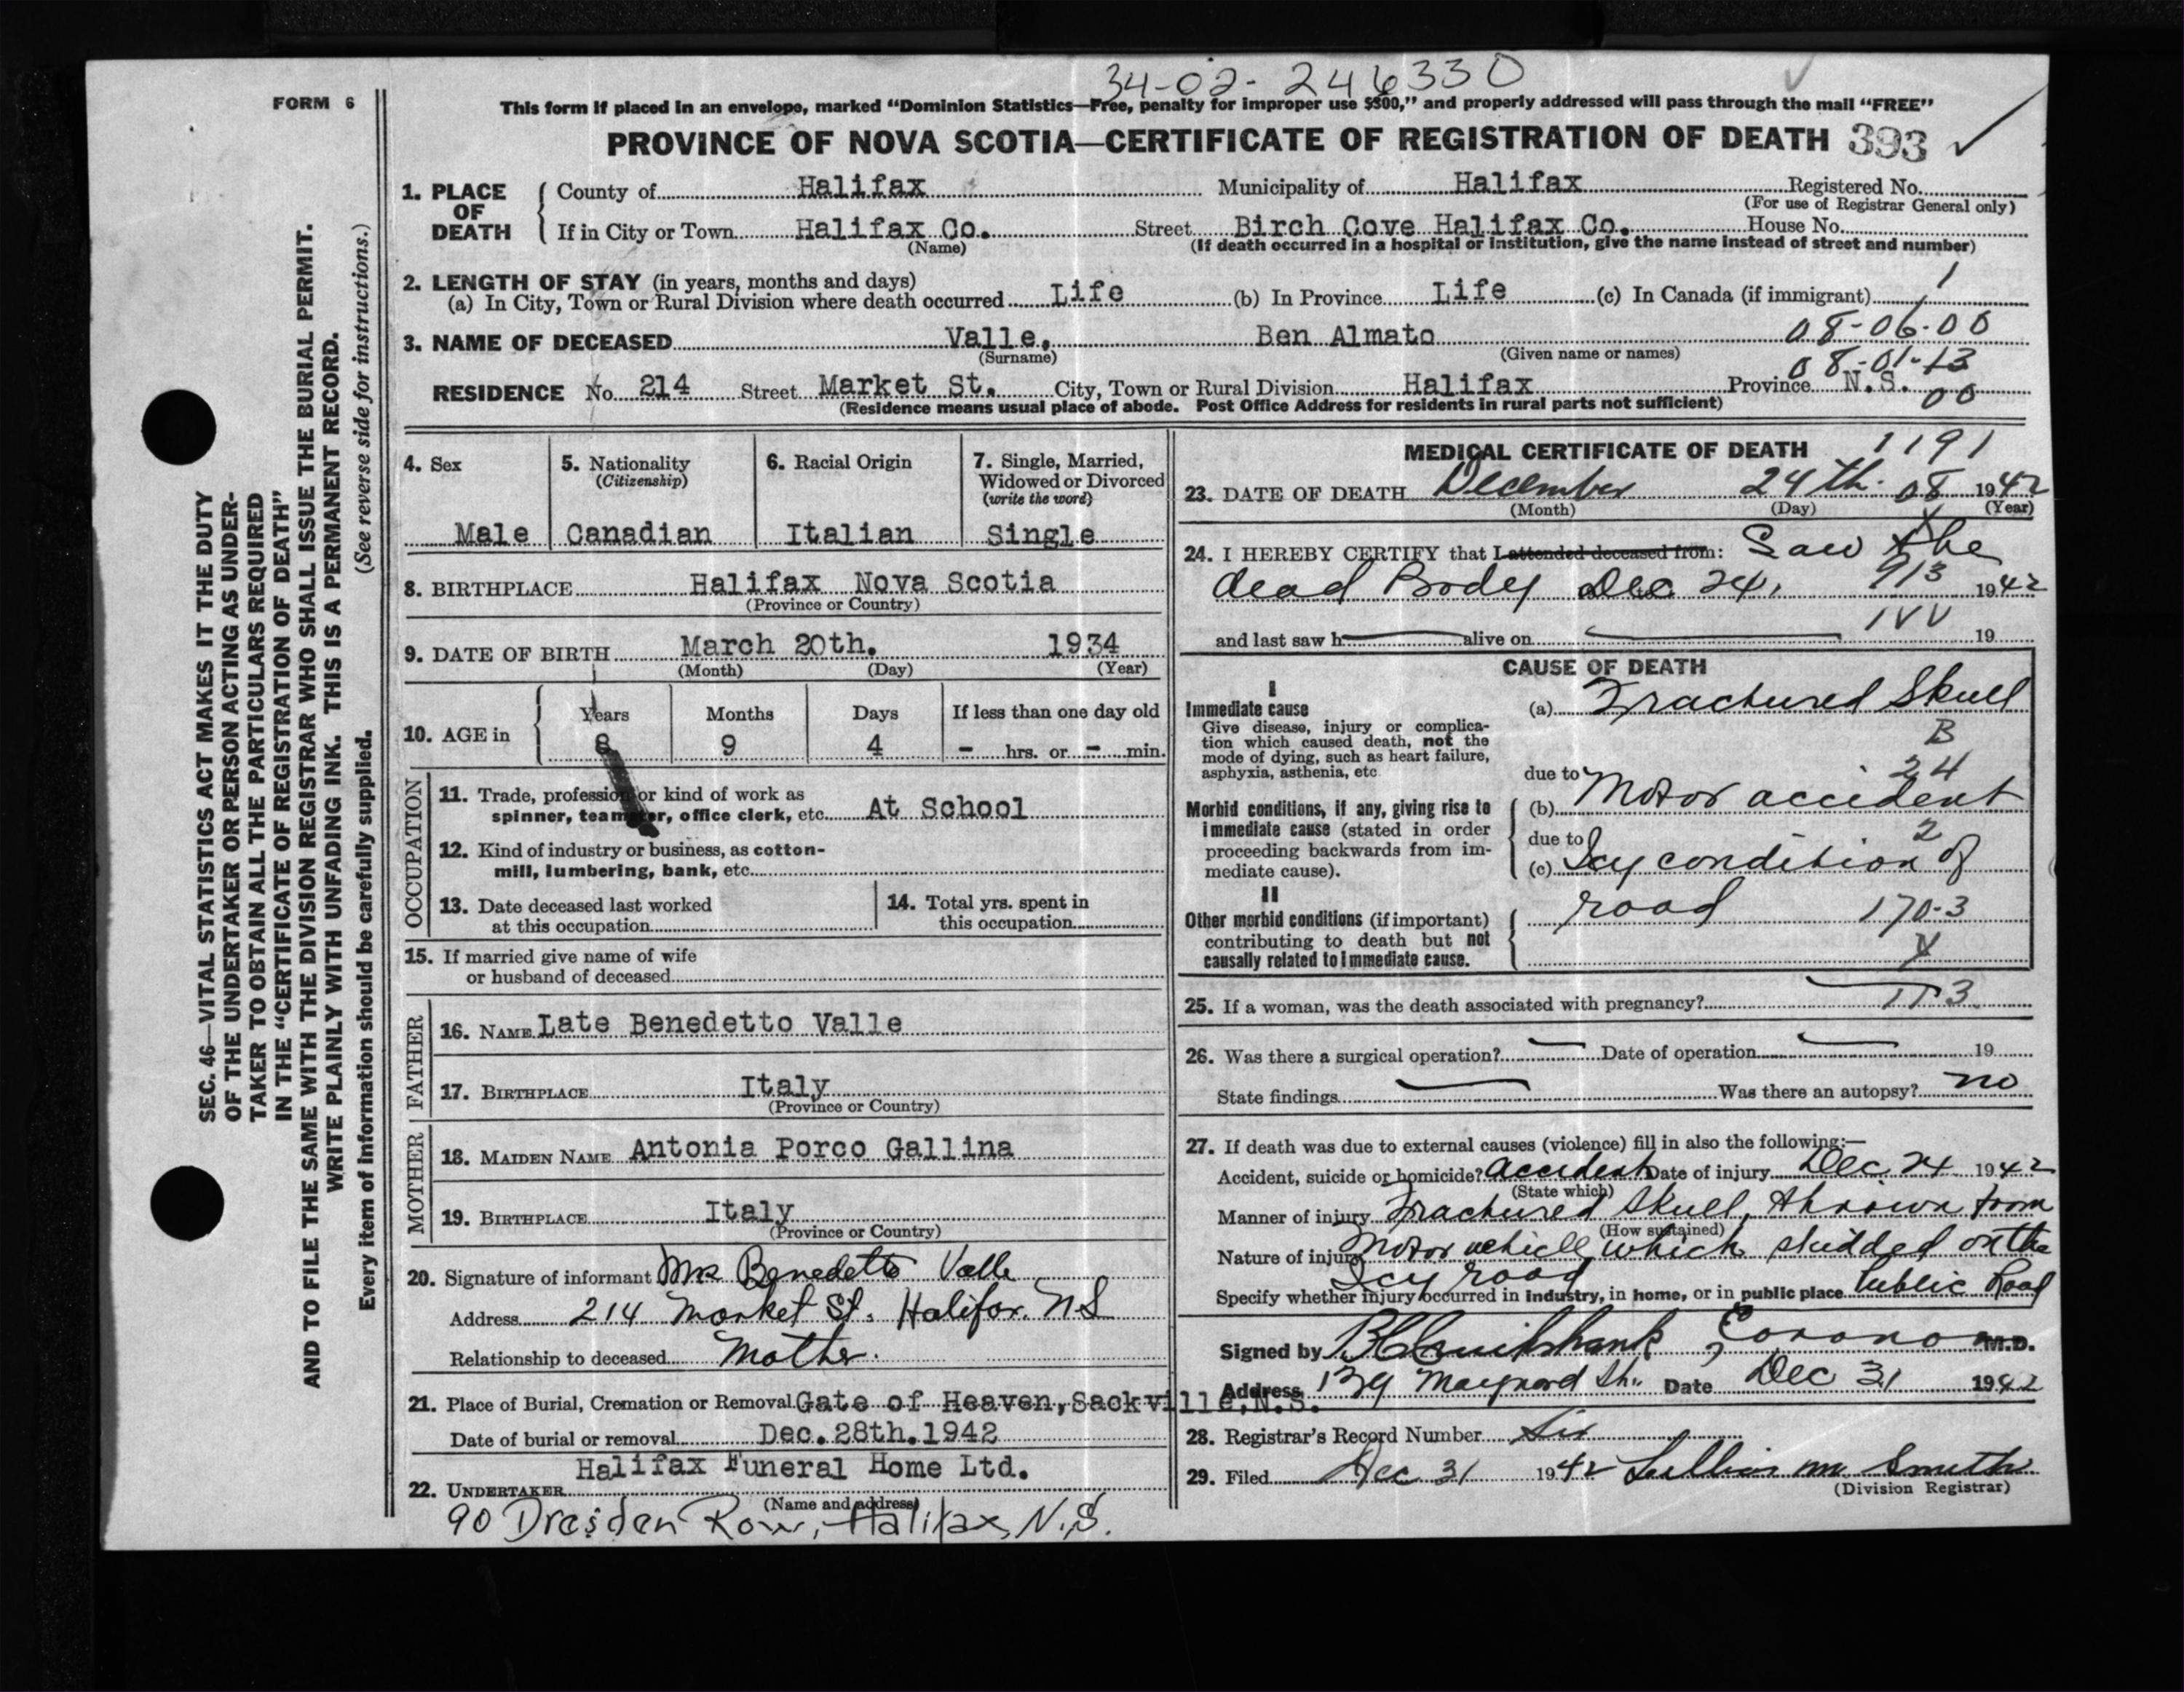 34-02-246330
FORM 6
This form if placed in an envelope, marked "Dominion Statistics—Free, penalty for improper use $300," and properly addressed will pass through the mail "FREE"
PROVINCE OF NOVA SCOTIA—CERTIFICATE OF REGISTRATION OF DEATH 393
1. PLACE OF DEATH County of Halifax Municipality of Halifax Registered No.
(For use of Registrar General only)
If in City or Town Halifax Co. Street Birch Cove Halifax Co. House No.
(Name) (If death occurred in a hospital or institution, give the name instead of street and number)
2. LENGTH OF STAY (in years, months and days) 1
(a) In City, Town or Rural Division where death occurred Life (b) In Province Life (c) In Canada (if immigrant)
08-06-00
3. NAME OF DECEASED Valle, Ben Almato
(Surname) (Given name or names)
08-01-13
RESIDENCE No. 214 Street Market St. City, Town or Rural Division Halifax Province N.S.
00
(Residence means usual place of abode. Post Office Address for residents in rural parts not sufficient)
4. Sex
Male
5. Nationality
(Citizenship)
Canadian
6. Racial Origin
Italian
7. Single, Married,
Widowed or Divorced
(write the word)
Single
8. BIRTHPLACE Halifax Nova Scotia
(Province or Country)
9. DATE OF BIRTH March 20th. 1934
(Month) (Day) (Year)
10. AGE in Years Months Days If less than one day old
8 9 4 - hrs. or - min.
OCCUPATION
11. Trade, profession or kind of work as
spinner, teamster, office clerk, etc. At School
12. Kind of industry or business, as cotton-
mill, lumbering, bank, etc.
13. Date deceased last worked
at this occupation
14. Total yrs. spent in
this occupation
15. If married give name of wife
or husband of deceased
FATHER
16. NAME Late Benedetto Valle
17. BIRTHPLACE Italy
(Province or Country)
MOTHER
18. MAIDEN NAME Antonia Porco Gallina
19. BIRTHPLACE Italy
(Province or Country)
20. Signature of informant Mrs Benedetto Valle
Address 214 Market St. Halifax. N S
Relationship to deceased Mother.
21. Place of Burial, Cremation or Removal Gate of Heaven, Sackville, N.S.
Date of burial or removal Dec. 28th. 1942
Halifax Funeral Home Ltd.
22. UNDERTAKER
(Name and address)
90 Dresden Row, Halifax, N.S.
MEDICAL CERTIFICATE OF DEATH 1191
23. DATE OF DEATH December 24th. 08 1942
(Month) (Day) (Year)
24. I HEREBY CERTIFY that I attended deceased from: Saw the
dead Body Dec 24, 913 1942
and last saw h alive on 19
CAUSE OF DEATH
I
Immediate cause
Give disease, injury or complica-
tion which caused death, not the
mode of dying, such as heart failure,
asphyxia, asthenia, etc
(a) Fractured Skull
B
24
due to
Morbid conditions, if any, giving rise to
immediate cause (stated in order
proceeding backwards from im-
mediate cause).
(b) Motor accident
due to 2
(c) Icy condition of
road 170-3
II
Other morbid conditions (if important)
contributing to death but not
causally related to immediate cause.
25. If a woman, was the death associated with pregnancy?
26. Was there a surgical operation? Date of operation 19
State findings Was there an autopsy? no
27. If death was due to external causes (violence) fill in also the following:—
Accident, suicide or homicide? accident Date of injury Dec 24 1942
(State which)
Manner of injury Fractured Skull, thrown from
(How sustained)
Nature of injury Motor vehicle which skidded on the
Icy road
Specify whether injury occurred in industry, in home, or in public place Public Road
Signed by M.D.
Address Maynard St. Date Dec 31 1942
28. Registrar's Record Number Six
29. Filed Dec 31 1942 Lillian M Smith
(Division Registrar)
SEC. 46—VITAL STATISTICS ACT MAKES IT THE DUTY
OF THE UNDERTAKER OR PERSON ACTING AS UNDER-
TAKER TO OBTAIN ALL THE PARTICULARS REQUIRED
IN THE "CERTIFICATE OF REGISTRATION OF DEATH"
AND TO FILE THE SAME WITH THE DIVISION REGISTRAR WHO SHALL ISSUE THE BURIAL PERMIT.
WRITE PLAINLY WITH UNFADING INK. THIS IS A PERMANENT RECORD.
Every item of information should be carefully supplied. (See reverse side for instructions.)